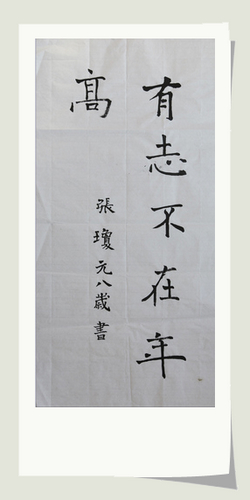 有志不在年
髙
張瓊元八歲書